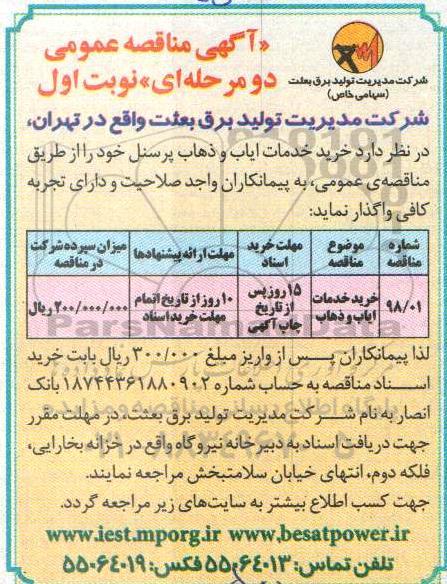 «آگهی مناقصه عمومی
دو مرحله‌ای» نوبت اول
شرکت مدیریت تولید برق بعثت
(سهامی خاص)
شرکت مدیریت تولید برق بعثت واقع در تهران،
در نظر دارد خرید خدمات ایاب و ذهاب پرسنل خود را از طریق
مناقصه‌ی عمومی، به پیمانکاران واجد صلاحیت و دارای تجربه
کافی واگذار نماید:
شماره مناقصه | موضوع مناقصه | مهلت خرید اسناد | مهلت ارائه پیشنهادها | میزان سپرده شرکت در مناقصه
۹۸/۰۱ | خرید خدمات ایاب و ذهاب | ۱۵ روز پس از تاریخ چاپ آگهی | ۱۰ روز از تاریخ اتمام مهلت خرید اسناد | ۲۰۰/۰۰۰/۰۰۰ ریال
لذا پیمانکاران پس از واریز مبلغ ۳۰۰/۰۰۰ ریال بابت خرید
اسناد مناقصه به حساب شماره ۱۸۷۴۴۳۶۱۸۸۰۹۰۲ بانک
انصار به نام شرکت مدیریت تولید برق بعثت، در مهلت مقرر
جهت دریافت اسناد به دبیرخانه نیروگاه واقع در خزانه بخارایی،
فلکه دوم، انتهای خیابان سلامتبخش مراجعه نمایند.
جهت کسب اطلاع بیشتر به سایت‌های زیر مراجعه گردد.
www.iest.mporg.ir www.besatpower.ir
تلفن تماس: ۵۵۰۶۴۰۱۳ فکس: ۵۵۰۶۴۰۱۹